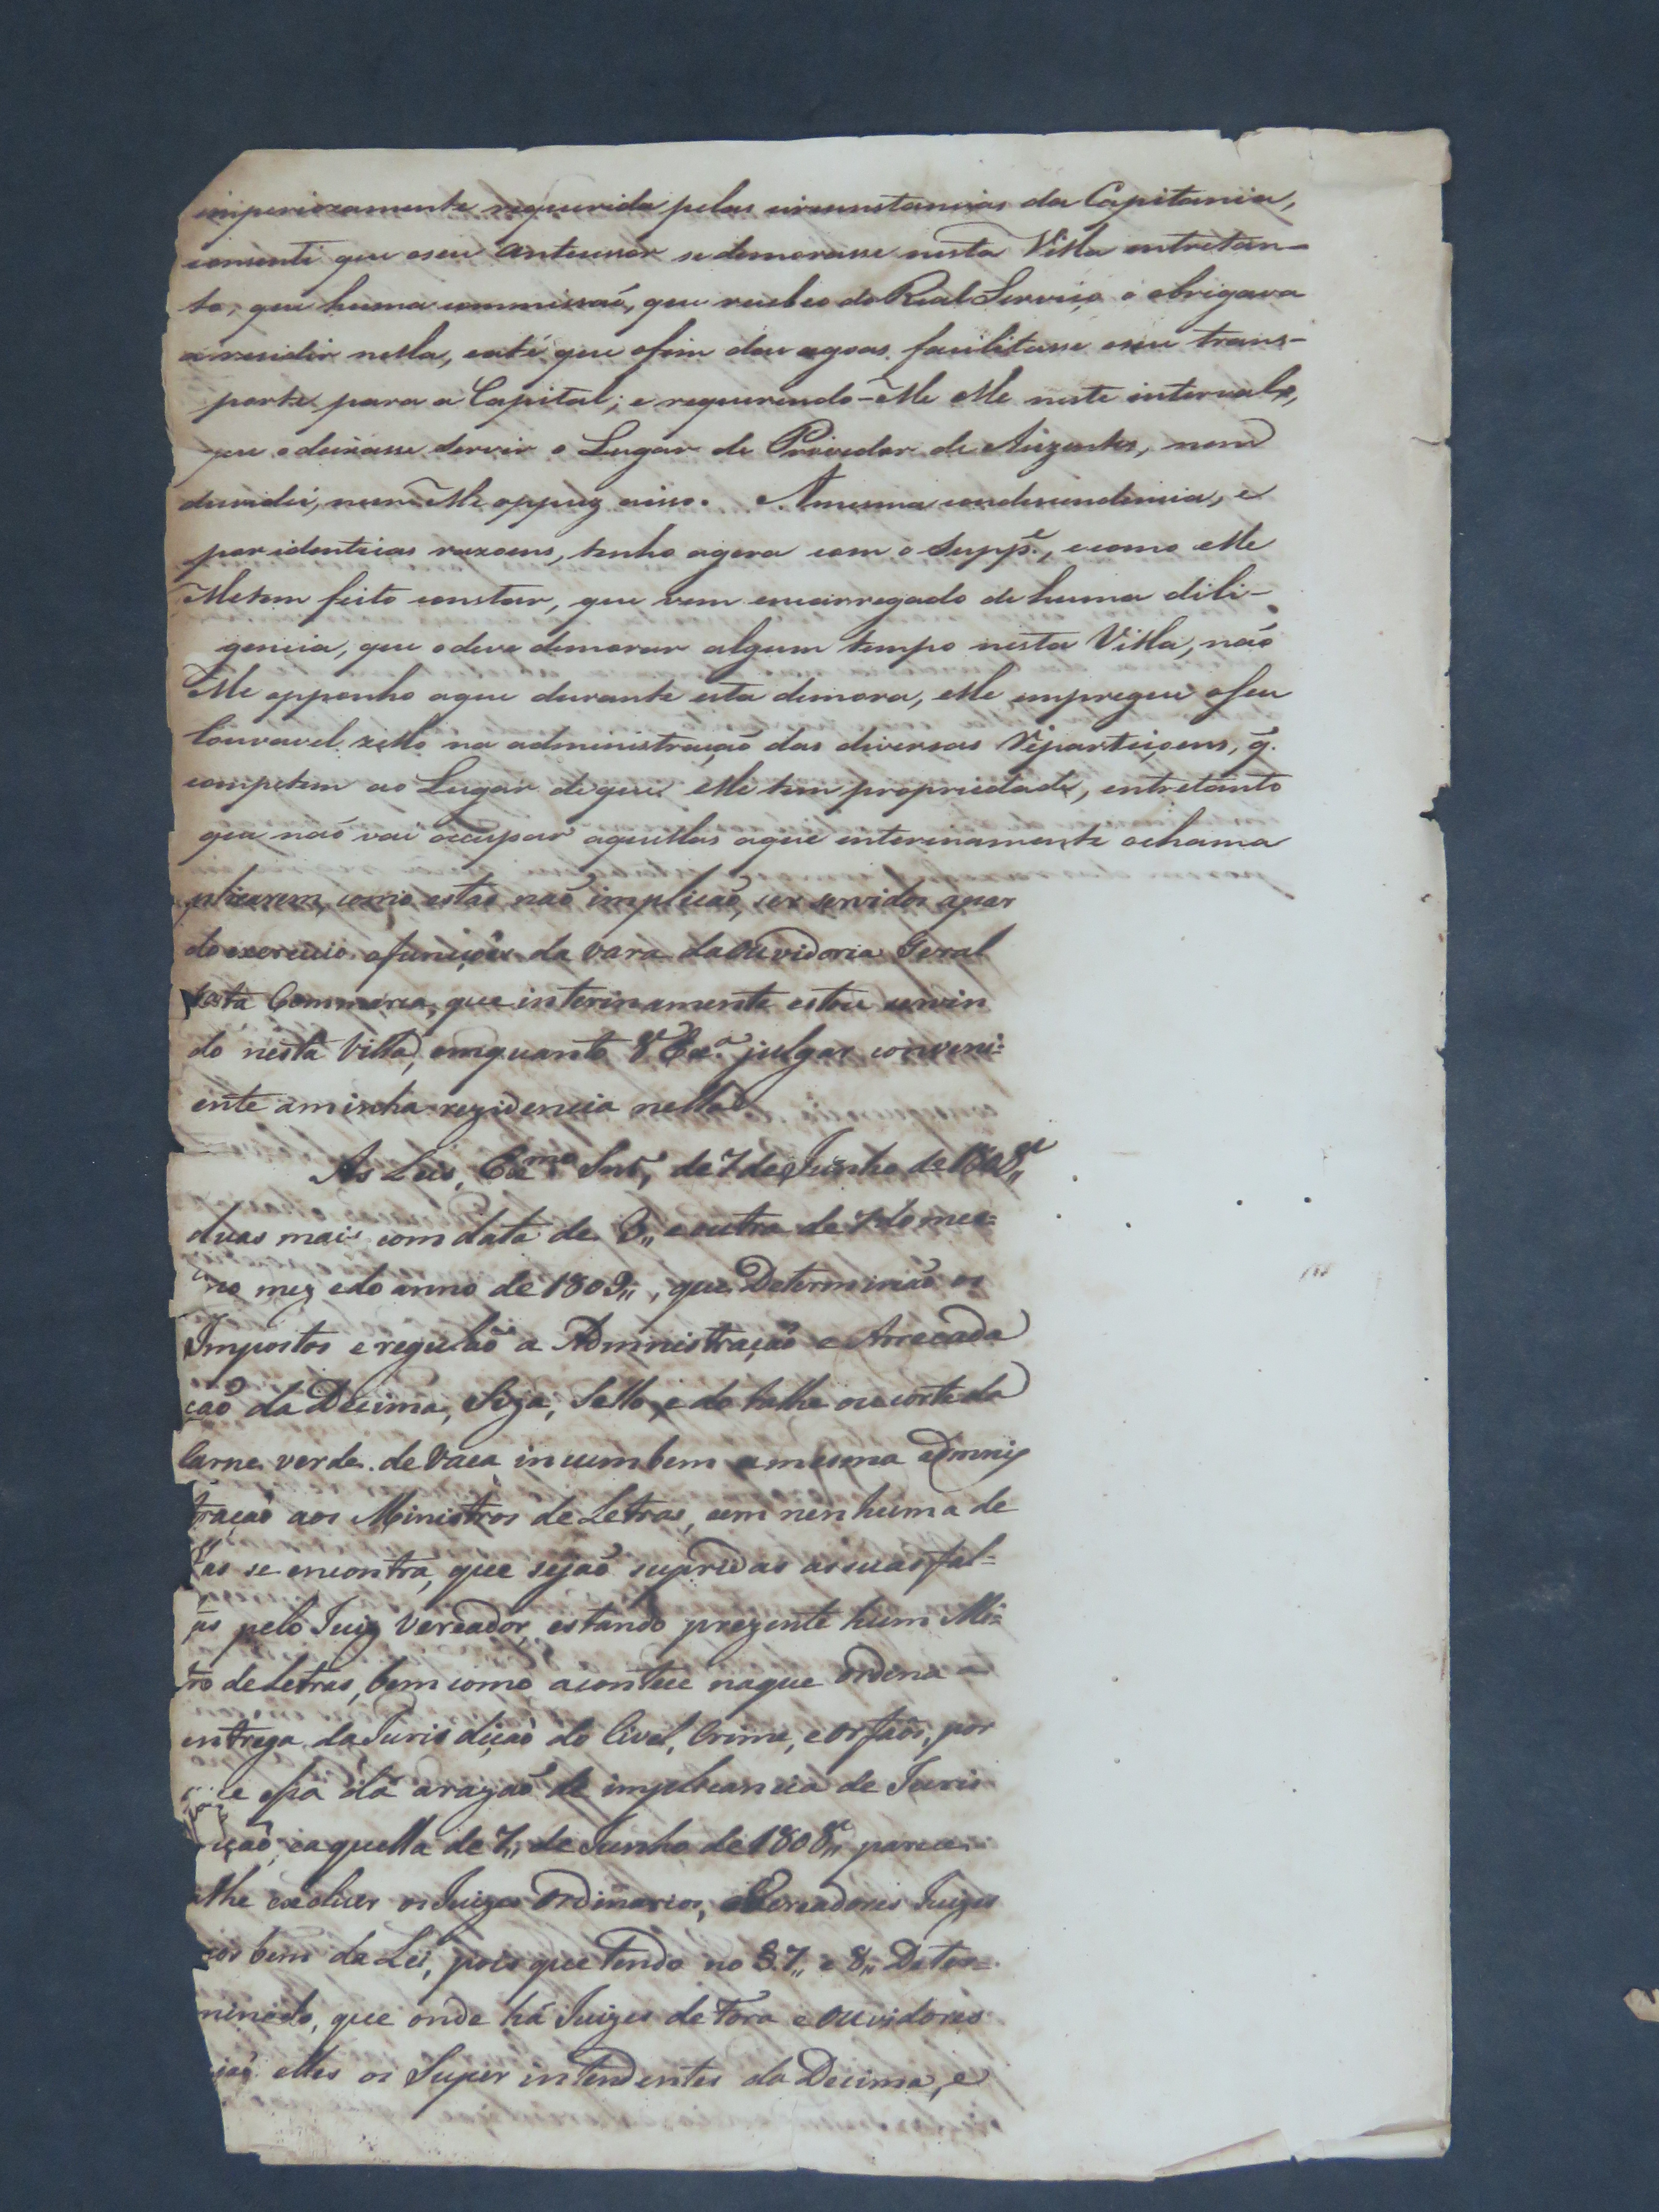 imperiozamente requerida pelas circunstancias da Capitania,
consenti que oseu Antecessor se demorasse nesta Villa entretan-
to, que huma commissaõ, que recebeo do Real Serviço o obrigava
a rezidir nella, e até que ofim das agoas facilitasse oseu trans-
porte para a Capital; e requerendo-Me elle neste intervalo,
que o deixasse servir o Lugar de Provedor de Auzentes, nem
duvidei, nem Me oppuz aisso. Amesma condescendencia, e
por identicas razoens, tenho agora com o Supp.e, e como elle
Metem feito constar, que vem encarregado de huma dili-
gencia, que odeve demorar algum tempo nesta Villa, naõ
Me opponho aque durante esta demora, elle empregue oseu
louvavel zello na administraçaõ das diversas Repartiçoens, q.
competem ao Lugar deque elle tem propriedade, entretanto
que naõ vai occupar aquellas aque interinamente ochama
plicarem, como estas naõ implicaõ, ser servidos apar
do exercicio efunçoẽs da vara daOuvidoria Geral
desta Commarca, que interinamente estou servin
do nesta Villa, emquanto V Ex.a julgar conveni=
ente aminha rezidencia nella
As Leis, Ex.mo Snr, de 7 de Junho de 1808,, e
duas mais com data de 3,, e outra de 7 do mes=
mo mez edo anno de 1809,, , que Determinaõ os
Impostos e regulaõ a Administraçaõ e Arrecada
çaõ da Decima, Siza, Sello, e do talhe ou corte da
Carne verde de Vaca incumbem amesma Admnis
traçaõ aos Ministros de Letras, em nenhuma de
las se encontra, que sejaõ supridas as suas fal=
as pelo Juiz Vereador, estando prezente hum Mi=
tro de Letras, bem como acontece naque Ordena a
entrega da Jurisdiçaõ do Civel, Crime, e Orfaõs, por
e essa dá arazaõ de implicancia de Juris
içaõ, e aquella de 7,, de Junho de 1808,, parece
lhe excluir os Juizes Ordinarios, e Vereadores Juizes
bem da Lei, pois que tendo no §.7,, e 8,, Deter=
minado, que onde há Juizes de Fora e Ouvidores
jaõ elles os Super intendentes da Decima, e